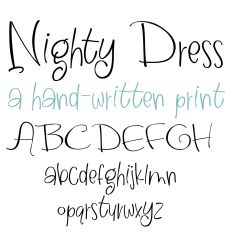 Nighty Dress
a hand-written print
ABCDEFGH
abcdefghijklmn
opqrstuvwxyz